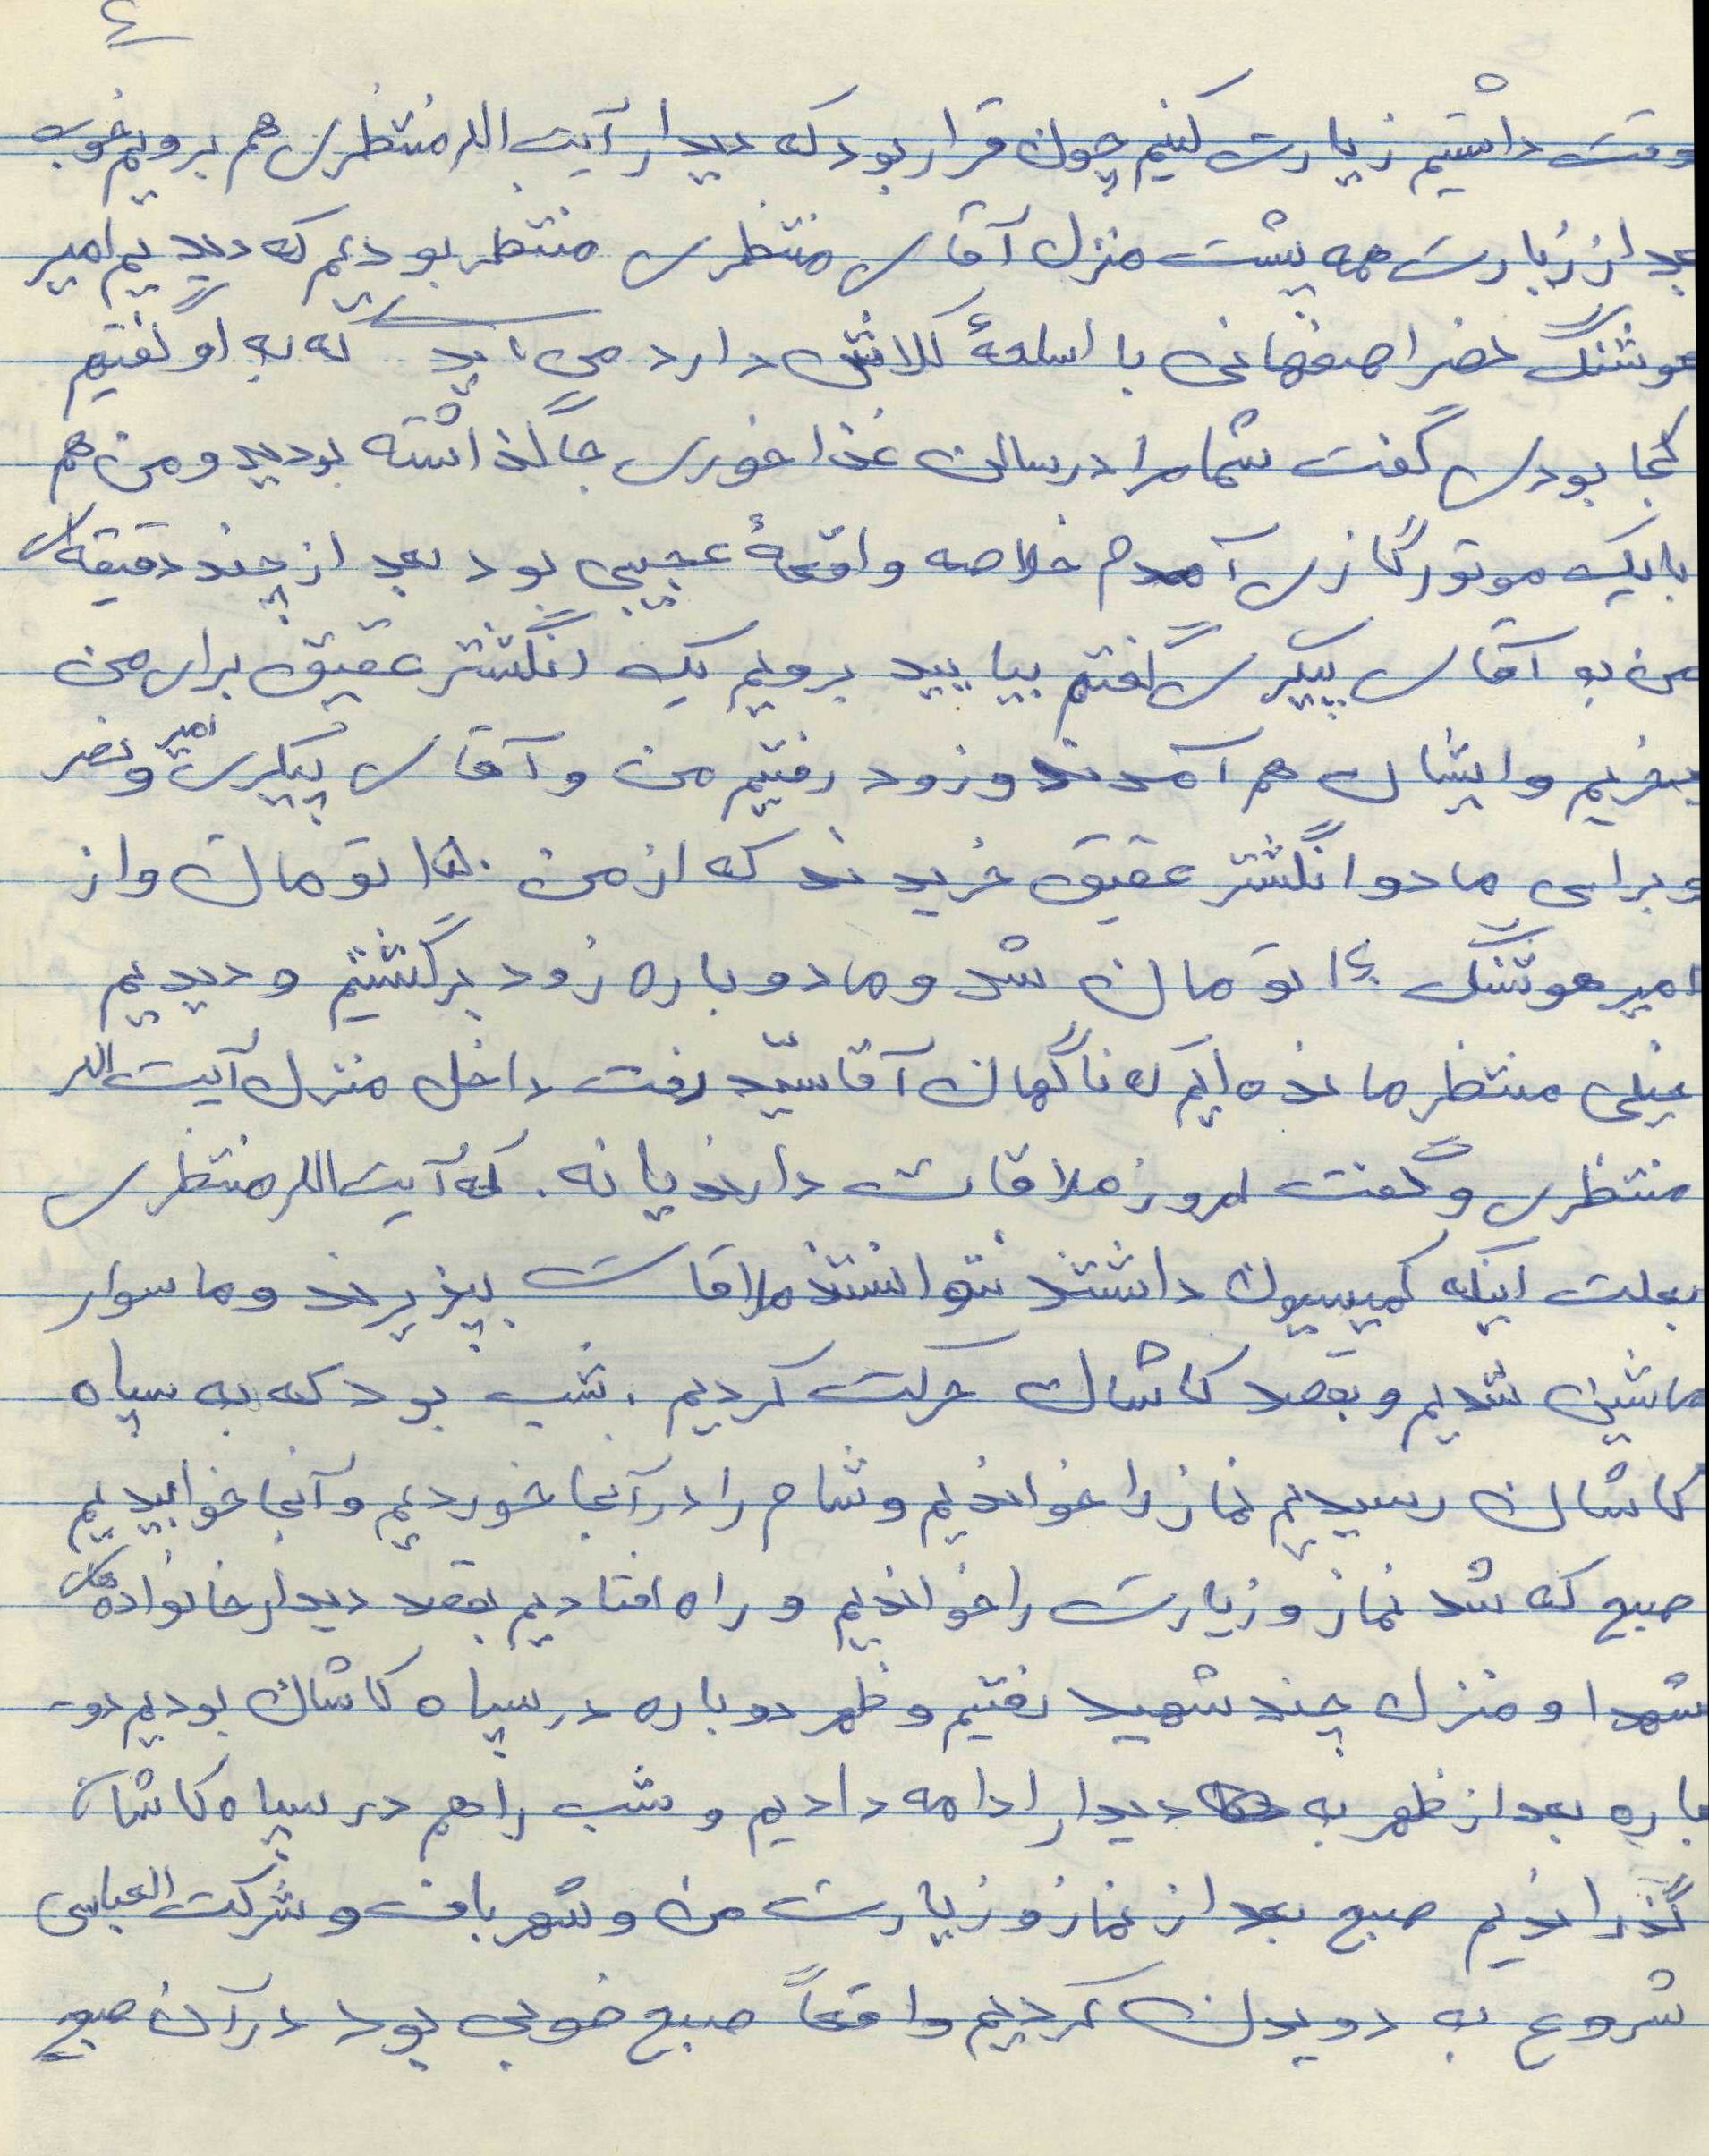 ٤
وقت داشتیم زیارت کنیم چون قرار بود که دیدار آیت الله منتظری هم برویم خوب
بعد از زیارت همه پشت منزل آقای منتظری منتظر بودیم که دیدیم امیر
هوشنگ خضر اصفهانی با اسلحهٔ کلاش دارد می آید که به او گفتیم
کجا بودی گفت شما مرا در سالن غذا خوری جا گذاشته بودید و من هم
با یک موتور گازی آمدم خلاصه واقعهٔ عجیبی بود بعد از چند دقیقه ای
من به آقای پیکری گفتم بیایید برویم یک انگشتر عقیق برای من
بخریم و ایشان هم آمدند و زود رفتیم من و آقای پیکری و امیر خضر
و برای ما دو انگشتر عقیق خریدند که از من ۱۵۰ تومان و از
امیر هوشنگ ١٤ تومان شد و ما دوباره زود برگشتیم و دیدیم
خیلی منتظر مانده ایم که ناگهان آقا سیّد رفت داخل منزل آیت الله
منتظری و گفت امروز ملاقات دارند یا نه. که آیت الله منتظری
بعلت اینکه کمیسیون داشتند نتوانستند ملاقات بپذیرند و ما سوار
ماشین شدیم و بقصد کاشان حرکت کردیم. شب بود که به سپاه
کاشان رسیدیم نماز را خواندیم و شام را در آنجا خوردیم و آنجا خوابیدیم
صبح که شد نماز و زیارت را خواندیم و راه افتادیم بقصد دیدار خانواده های
شهدا و منزل چند شهید رفتیم و ظهر دوباره در سپاه کاشان بودیم دو-
باره بعد از ظهر به دیدار ادامه دادیم و شب را هم در سپاه کاشان
گذراندیم صبح بعد از نماز و زیارت من و شعرباف و شرکت العباسی
شروع به دویدن کردیم واقعاً صبح خوبی بود در آن صبح